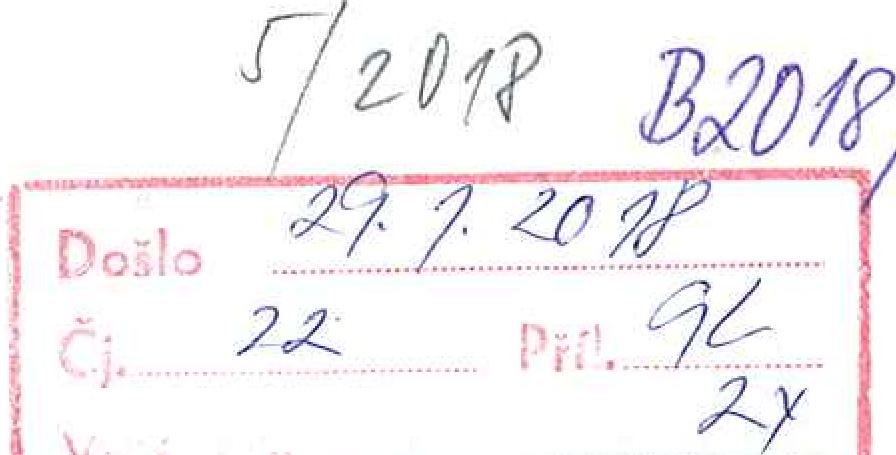 5/2018 B2018/
Došlo 29. 1. 2018
Čj. 22 Příl. 9L
2x